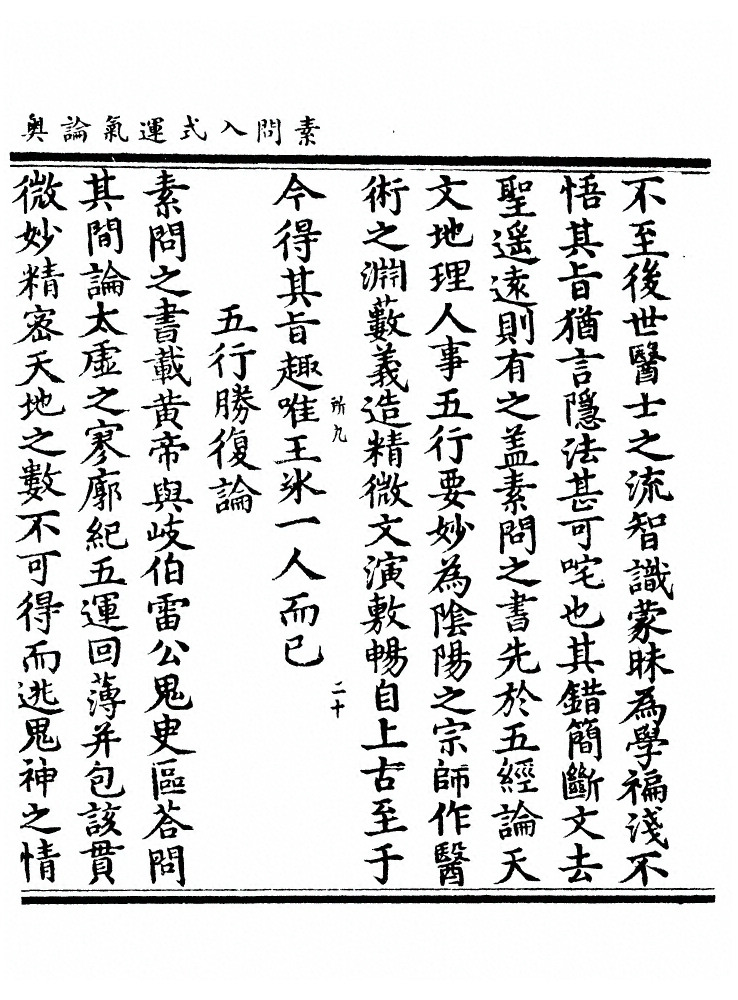 素問入式運氣論奧
不至後世醫士之流智識蒙昧為學褊淺不
悟其旨猶言隱法甚可咤也其錯簡斷文去
聖遥遠則有之盖素問之書先於五經論天
文地理人事五行要妙為陰陽之宗師作醫
術之淵藪義造精微文演敷暢自上古至于
今得其旨趣唯王氷一人而已
所九
二十
五行勝復論
素問之書載黄帝與岐伯雷公鬼史區荅問
其間論太虛之寥廓紀五運回薄并包該貫
微妙精宻天地之數不可得而逃鬼神之情